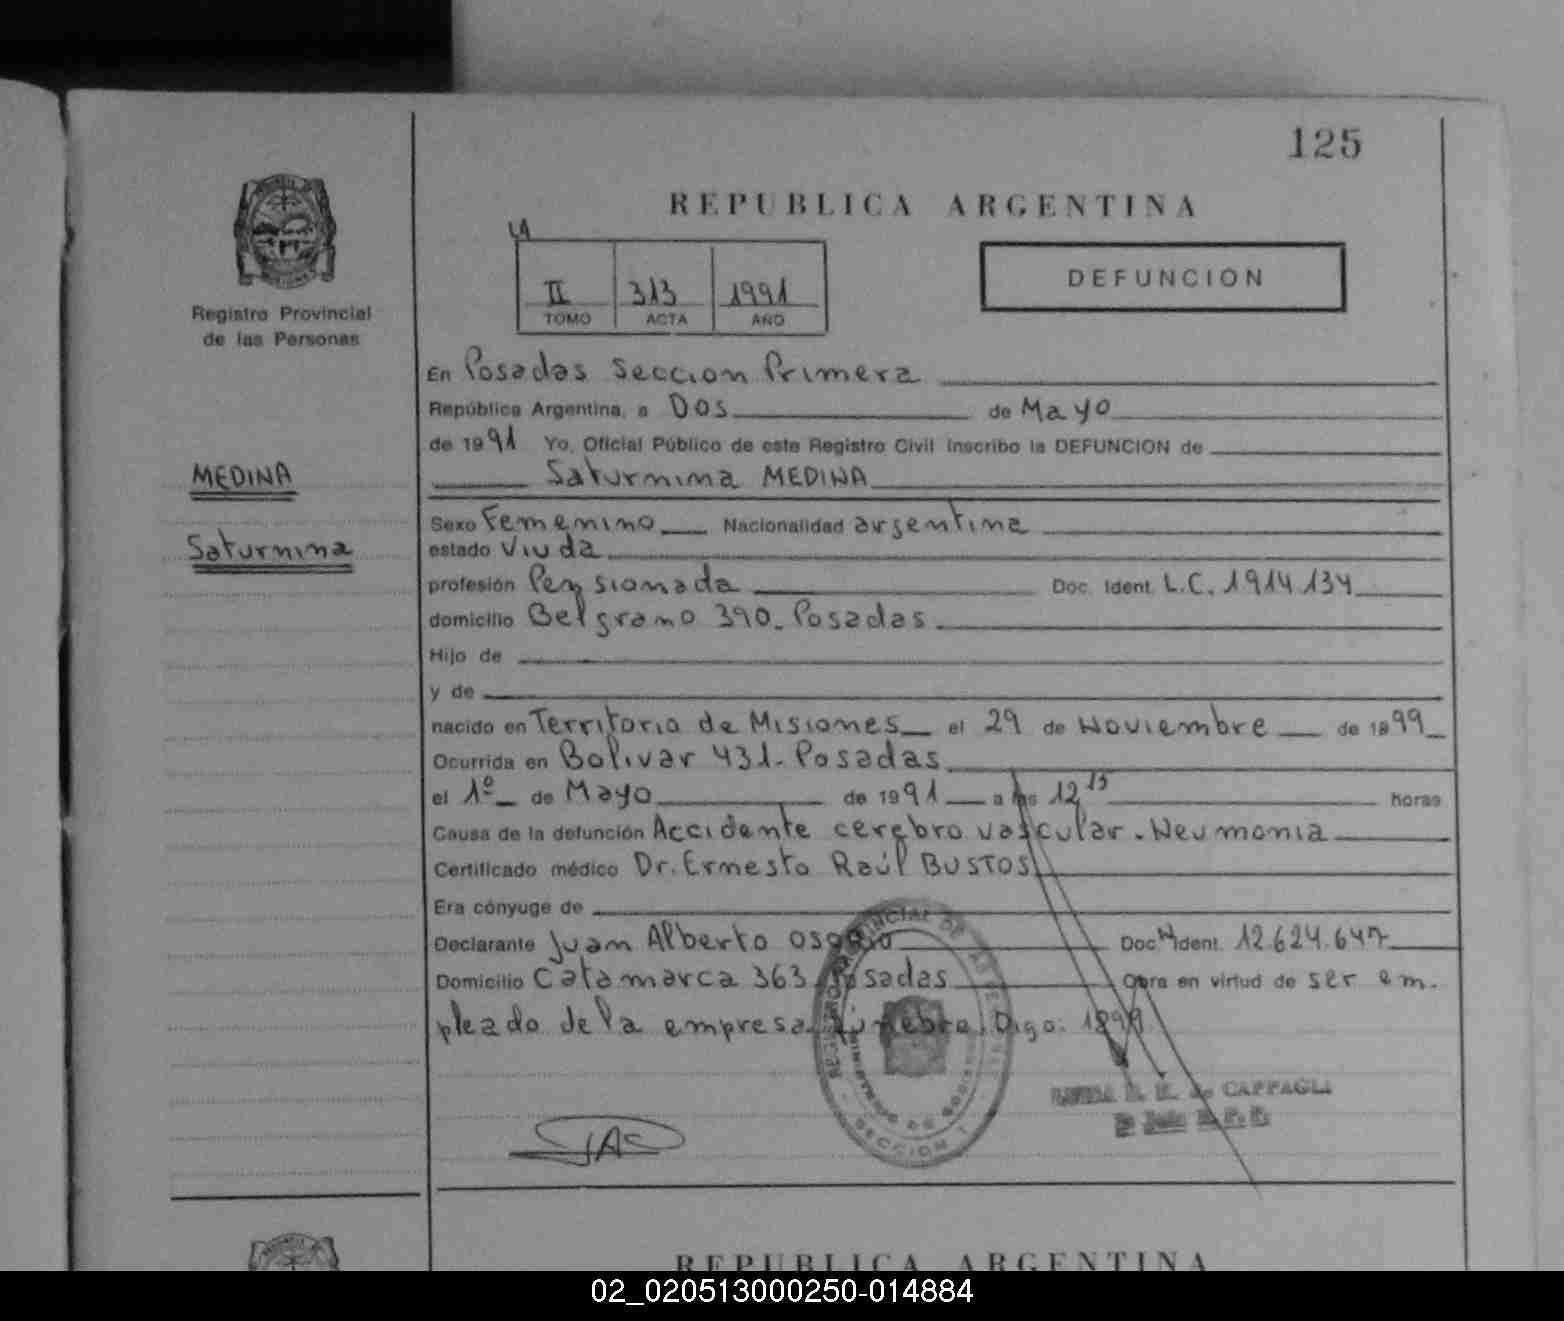 125
REPUBLICA ARGENTINA
II 313 1991
TOMO ACTA AÑO
DEFUNCION
Registro Provincial
de las Personas
MEDINA
Saturnina
En Posadas Seccion Primera
República Argentina, a Dos de Mayo
de 1991 Yo, Oficial Público de este Registro Civil inscribo la DEFUNCION de
Saturnina MEDINA
Sexo Femenino Nacionalidad argentina
estado Viuda
profesión Pensionada Doc. Ident. L.C. 1914.134
domicilio Belgrano 390. Posadas
Hijo de
y de
nacido en Territorio de Misiones el 29 de Noviembre de 1899
Ocurrida en Bolivar 431. Posadas
el 1º de Mayo de 1991 a las 12 15 horas
Causa de la defunción Accidente cerebro vascular. Neumonia
Certificado médico Dr. Ernesto Raúl BUSTOS
Era cónyuge de
Declarante Juan Alberto Osorio Doc. Ident. 12.624.647
Domicilio Catamarca 363 Posadas Obra en virtud de ser em.
pleado de la empresa fúnebre. Digo: 1899
CAPPAGLI
SECCION 1
REPUBLICA ARGENTINA
02_020513000250-014884